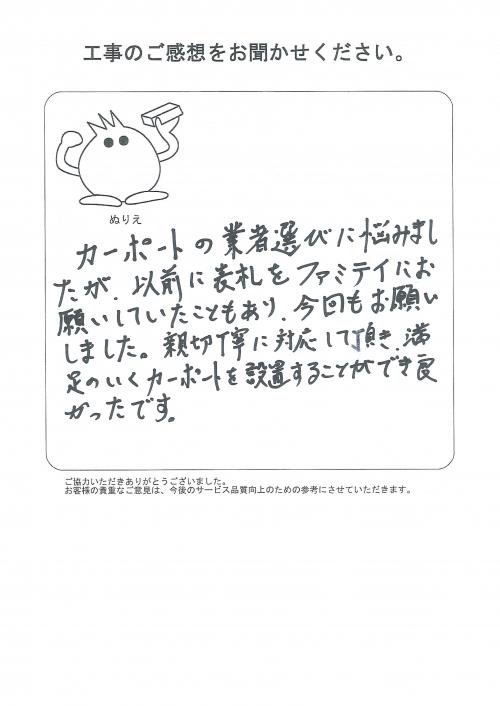 工事のご感想をお聞かせください。
ぬりえ
カーポートの業者選びに悩みまし
たが、以前に表札をファミテイにお
願いしていたこともあり、今回もお願い
しました。親切丁寧に対応して頂き、満
足のいくカーポートを設置することができ良
かったです。
ご協力いただきありがとうございました。
お客様の貴重なご意見は、今後のサービス品質向上のための参考にさせていただきます。